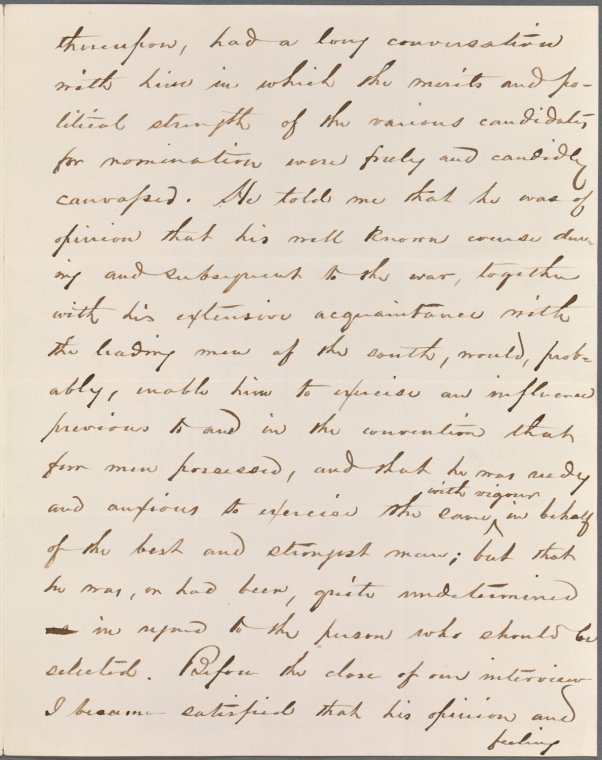 thereupon, had a long conversation
with him in which the merits and po-
litical strength of the various candidates
for nomination were freely and candidly
canvassed. He told me that he was of
opinion that his well known course dur-
ing and subsequent to the war, together
with his extensive acquaintance with
the leading men of the south, would, prob-
ably, enable him to exercise an influence
previous to and in the convention that
few men possessed, and that he was ready
with vigour
and anxious to exercise the same in behalf
of the best and strongest man; but that
he was, or had been, quite undetermined
in regard to the person who should be
selected. Before the close of our interview
I became satisfied that his opinion and
feeling